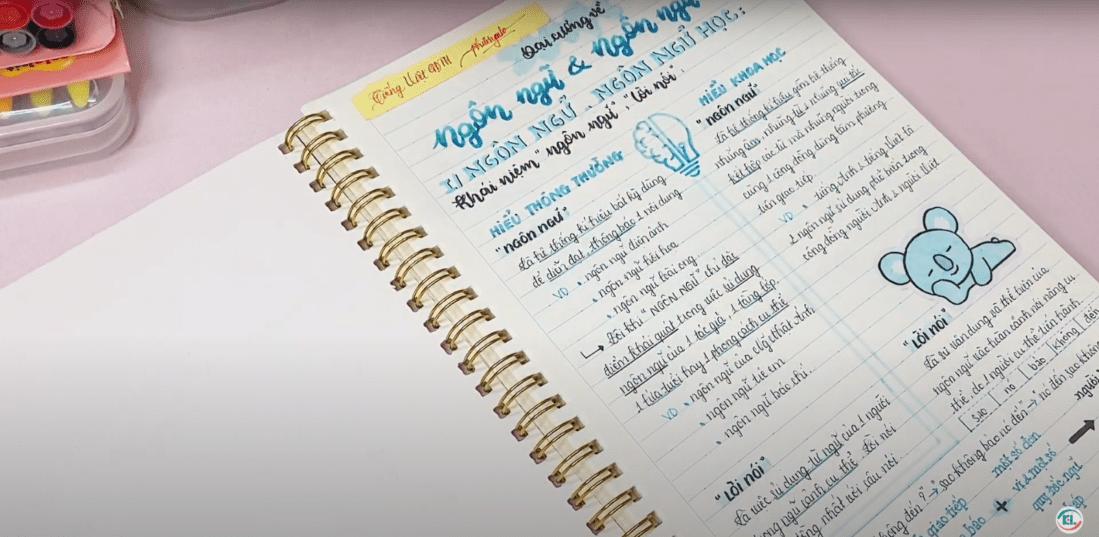 Tiếng Việt
Đại cương về
ngôn ngữ & ngôn ngữ
I) NGÔN NGỮ - NGÔN NGỮ HỌC:
Khái niệm "ngôn ngữ", "lời nói".
HIỂU THÔNG THƯỜNG
"NGÔN NGỮ"
Là hệ thống kí hiệu bất kỳ dùng
để diễn đạt, thông báo 1 nội dung
VD • ngôn ngữ điện ảnh
• ngôn ngữ hội họa
• ngôn ngữ loài ong...
Đôi khi "NGÔN NGỮ" chỉ đặc
điểm khái quát trong việc sử dụng
ngôn ngữ của 1 tác giả, 1 tầng lớp,
1 lứa tuổi hay 1 phong cách cụ thể
VD • ngôn ngữ của
• ngôn ngữ trẻ em
• ngôn ngữ báo chí...
"LỜI NÓI"
Là việc sử dụng từ ngữ của 1 người
trong ngữ cảnh cụ thể. Lời nói
đồng nhất với câu nói...
HIỂU KHOA HỌC
"NGÔN NGỮ"
Là hệ thống kí hiệu gồm hệ thống
những âm, những từ & những quy tắc
kết hợp các từ mà những người trong
cùng 1 cộng đồng dùng làm phương
tiện giao tiếp
VD • tiếng Anh & tiếng Việt là
2 ngôn ngữ sử dụng phổ biến trong
cộng đồng người Anh & người Việt
"LỜI NÓI"
Là sự vận dụng và thể hiện của
ngôn ngữ vào hoàn cảnh nói năng cụ
thể, do 1 người cụ thể tiến hành
sao | nó | bảo | không | đến
sao không bảo nó đến → nó đến sao không
không đến?" → sao không
người
một số đơn
vị & một số
quy tắc ngữ
pháp
giao tiếp